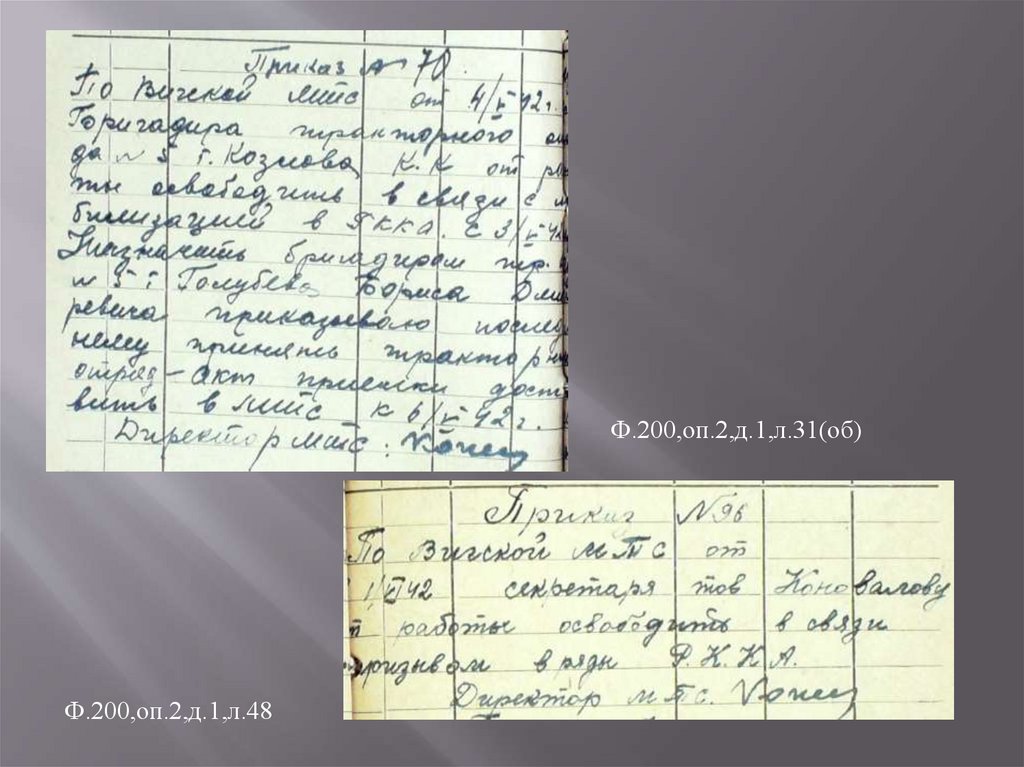 Приказ № 70.
По Вичской МТС от 4/VI 42 г.
Бригадира тракторного
да № 5 т. Козлова К.К от
ты освободить в связи с м
билизацией в РККА. с 3/VI 42
Назначить бригадиром тр.
№ 5 т Голубева Бориса Дми
риевича приказываю послед
нему принять трактор
отряд - акт приемки доста
вить в МТС к 6/VI 42 г.
Директор МТС:
Ф.200,оп.2,д.1,л.31(об)
Приказ № 96
По Вичской МТС от
секретаря тов Коновалову
т работы освободить в связи
призывом в ряды Р.К.К.А.
Директор МТС.
Ф.200,оп.2,д.1,л.48